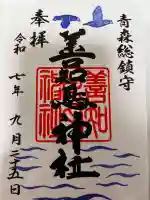 青森総鎮守
奉拝
善知鳥神社
善知
鳥神社
令和七年九月二十五日